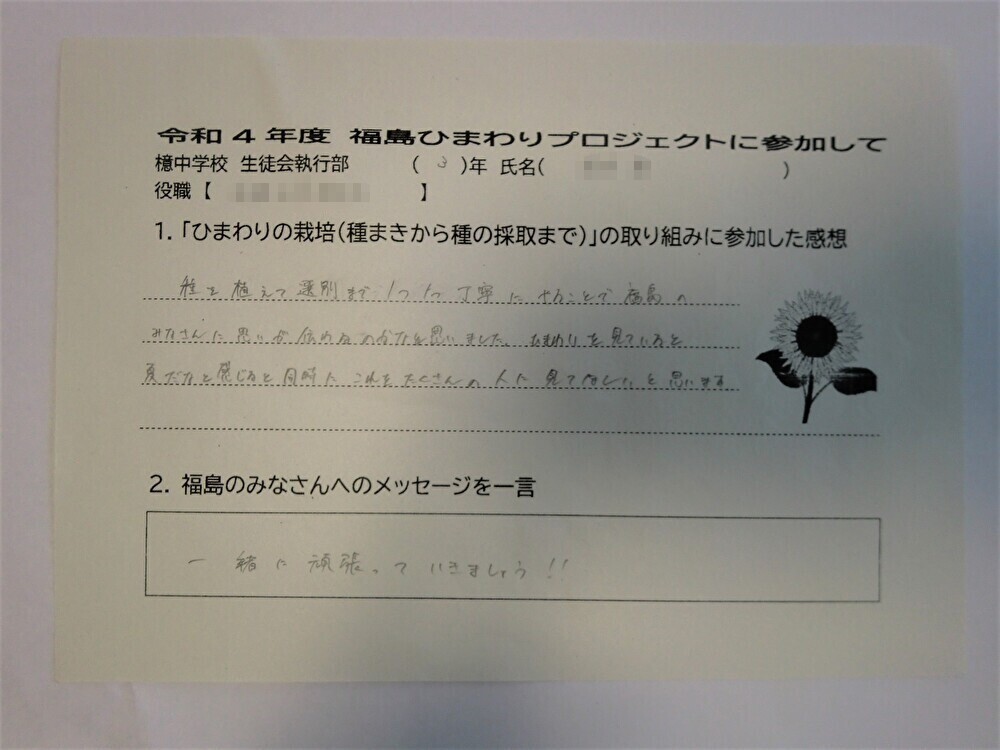 令和4年度 福島ひまわりプロジェクトに参加して
檍中学校 生徒会執行部 (3)年 氏名( )
役職【 】
1.「ひまわりの栽培(種まきから種の採取まで)」の取り組みに参加した感想
種を植えて選別まで1つ1つ丁寧にやることで福島の
みなさんに思いが伝わるのかなと思いました。ひまわりを見ていると
夏だなと感じると同時にこれをたくさんの人に見てほしいと思います
2. 福島のみなさんへのメッセージを一言
一緒に頑張っていきましょう!!